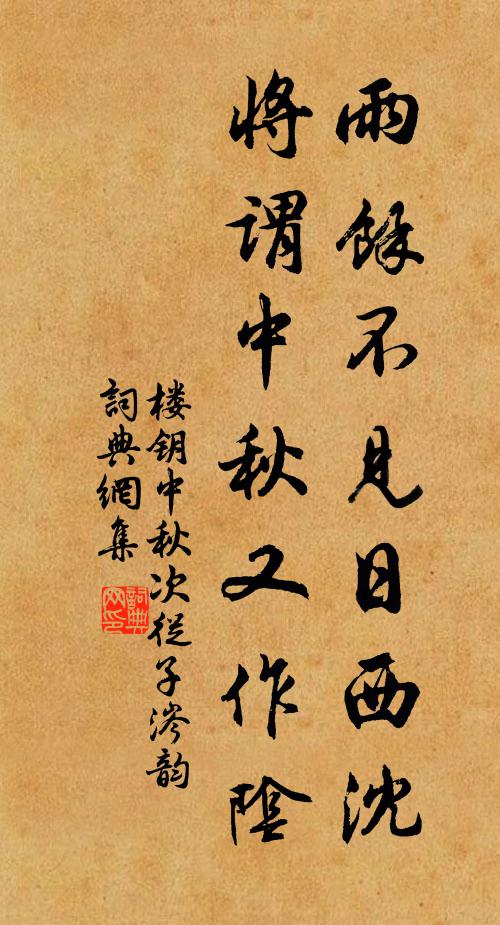 雨餘不見日西沈
將謂中秋又作陰
楼钥中秋次從子涔韵
詞典網集
詞典網印